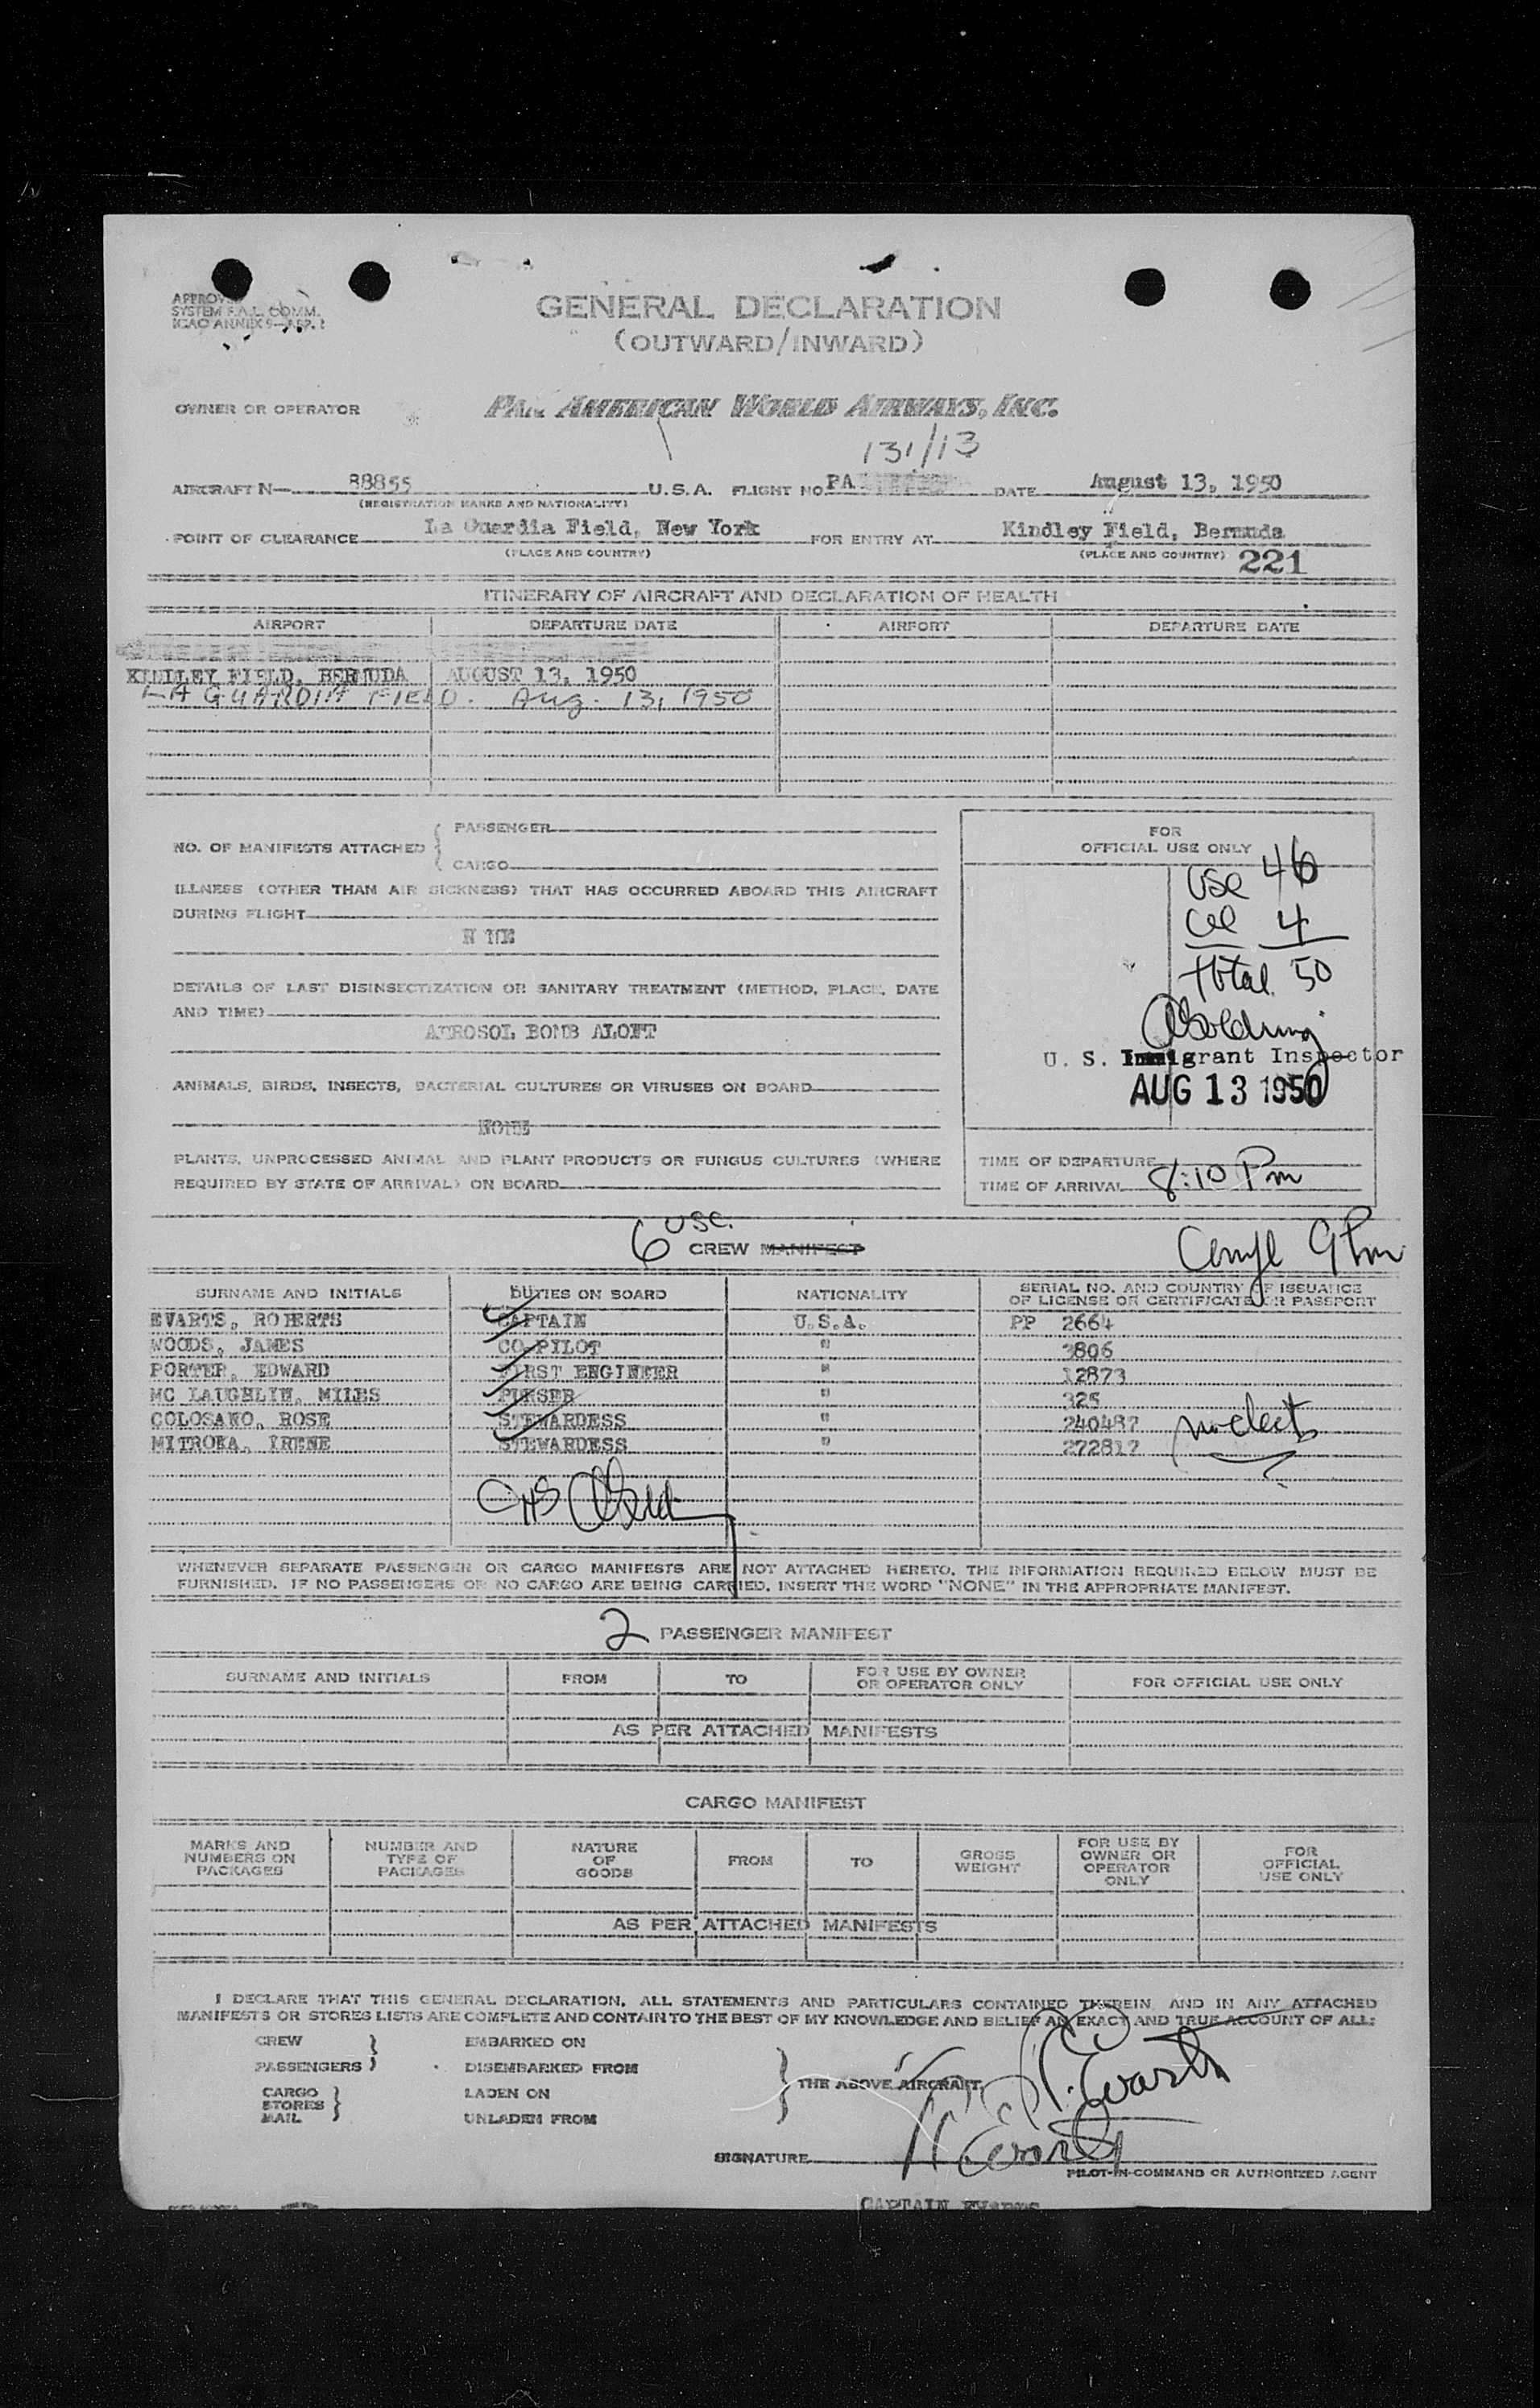 GENERAL DECLARATION
(OUTWARD/INWARD)
SYSTEM F.A.L. COMM.
OWNER OR OPERATOR PAN AMERICAN WORLD AIRWAYS, INC.
131/13
AIRCRAFT N— 88855 U.S.A. FLIGHT NO. PA DATE August 13, 1950
(REGISTRATION MARKS AND NATIONALITY)
POINT OF CLEARANCE La Guardia Field, New York FOR ENTRY AT Kindley Field, Bermuda
(PLACE AND COUNTRY) (PLACE AND COUNTRY) 221
ITINERARY OF AIRCRAFT AND DECLARATION OF HEALTH
AIRPORT DEPARTURE DATE AIRPORT DEPARTURE DATE
KINDLEY FIELD, BERMUDA AUGUST 13, 1950
LA GUARDIA FIELD. Aug. 13, 1950
NO. OF MANIFESTS ATTACHED { PASSENGER
CARGO
ILLNESS (OTHER THAN AIR SICKNESS) THAT HAS OCCURRED ABOARD THIS AIRCRAFT
DURING FLIGHT
N NE
DETAILS OF LAST DISINSECTIZATION OR SANITARY TREATMENT (METHOD, PLACE, DATE
AND TIME)
AEROSOL BOMB ALOFT
ANIMALS, BIRDS, INSECTS, BACTERIAL CULTURES OR VIRUSES ON BOARD
NONE
PLANTS, UNPROCESSED ANIMAL AND PLANT PRODUCTS OR FUNGUS CULTURES (WHERE
REQUIRED BY STATE OF ARRIVAL) ON BOARD
FOR
OFFICIAL USE ONLY
USC 46
4
total 50
U. S. Immigrant Inspector
AUG 13 1950
TIME OF DEPARTURE
TIME OF ARRIVAL 8:10 Pm
6 USC.
CREW MANIFEST
9 Pm
SURNAME AND INITIALS DUTIES ON BOARD NATIONALITY SERIAL NO. AND COUNTRY OF ISSUANCE
OF LICENSE OR CERTIFICATE OR PASSPORT
EVARTS, ROBERTS CAPTAIN U.S.A. PP 2664
WOODS, JAMES CO-PILOT " 3806
PORTER, EDWARD FIRST ENGINEER " 12873
MC LAUGHLIN, MILES PURSER " 325
COLOSANO, ROSE STEWARDESS " 240487
MITROKA, IRENE STEWARDESS " 272817
WHENEVER SEPARATE PASSENGER OR CARGO MANIFESTS ARE NOT ATTACHED HERETO, THE INFORMATION REQUIRED BELOW MUST BE
FURNISHED. IF NO PASSENGERS OR NO CARGO ARE BEING CARRIED, INSERT THE WORD "NONE" IN THE APPROPRIATE MANIFEST.
2 PASSENGER MANIFEST
SURNAME AND INITIALS FROM TO FOR USE BY OWNER
OR OPERATOR ONLY FOR OFFICIAL USE ONLY
AS PER ATTACHED MANIFESTS
CARGO MANIFEST
MARKS AND
NUMBERS ON
PACKAGES
NUMBER AND
TYPE OF
PACKAGES
NATURE
OF
GOODS
FROM
TO
GROSS
WEIGHT
FOR USE BY
OWNER OR
OPERATOR
ONLY
FOR
OFFICIAL
USE ONLY
AS PER ATTACHED MANIFESTS
I DECLARE THAT THIS GENERAL DECLARATION, ALL STATEMENTS AND PARTICULARS CONTAINED THEREIN AND IN ANY ATTACHED
MANIFESTS OR STORES LISTS ARE COMPLETE AND CONTAIN TO THE BEST OF MY KNOWLEDGE AND BELIEF AN EXACT AND TRUE ACCOUNT OF ALL:
CREW } EMBARKED ON
PASSENGERS DISEMBARKED FROM
THE ABOVE AIRCRAFT.
CARGO LADEN ON
STORES
MAIL UNLADEN FROM
SIGNATURE
PILOT-IN-COMMAND OR AUTHORIZED AGENT
CAPTAIN EVARTS